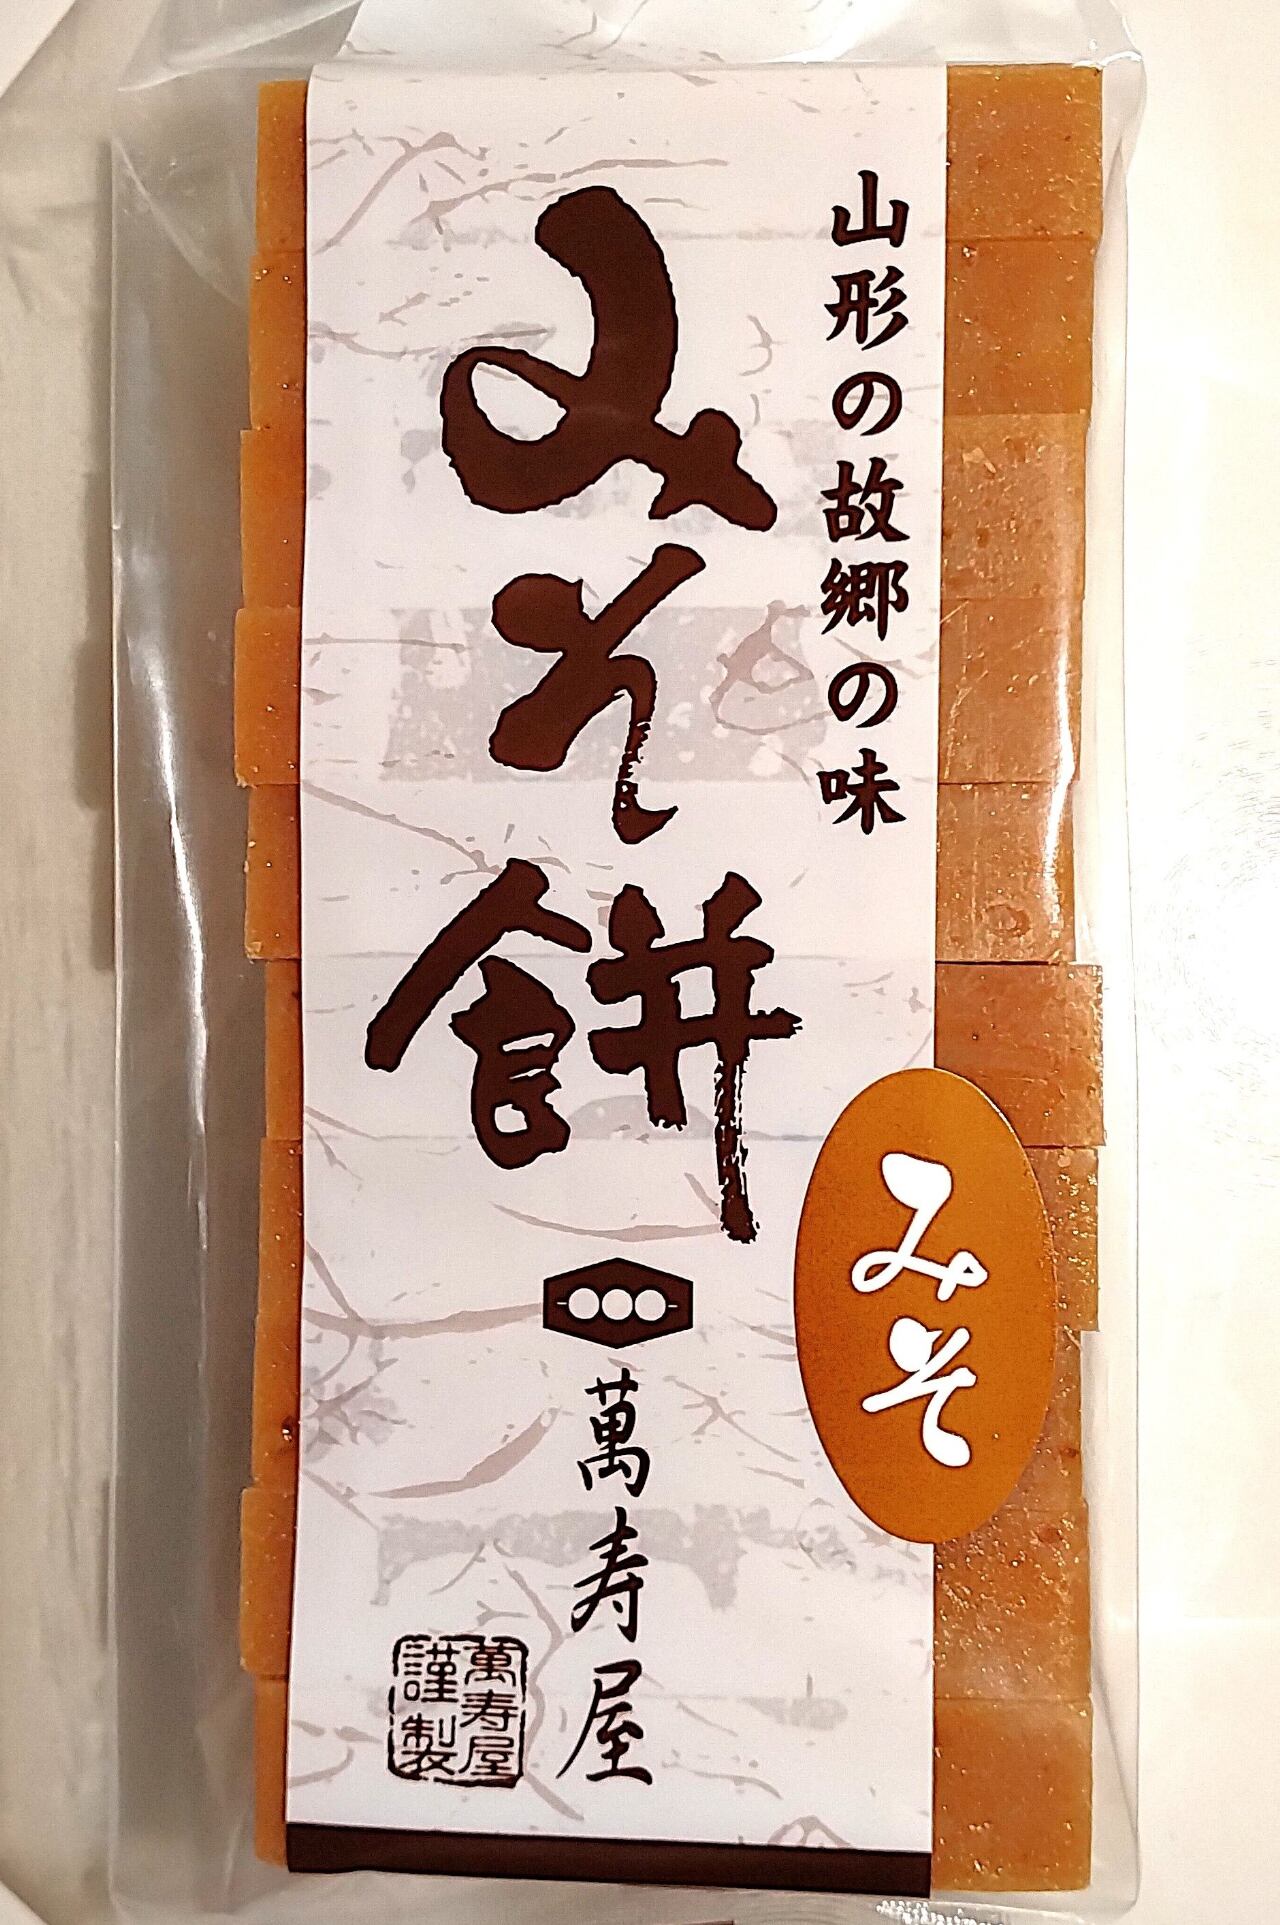 山形の故郷の味
みそ餅
萬寿屋
萬寿屋
謹製
みそ